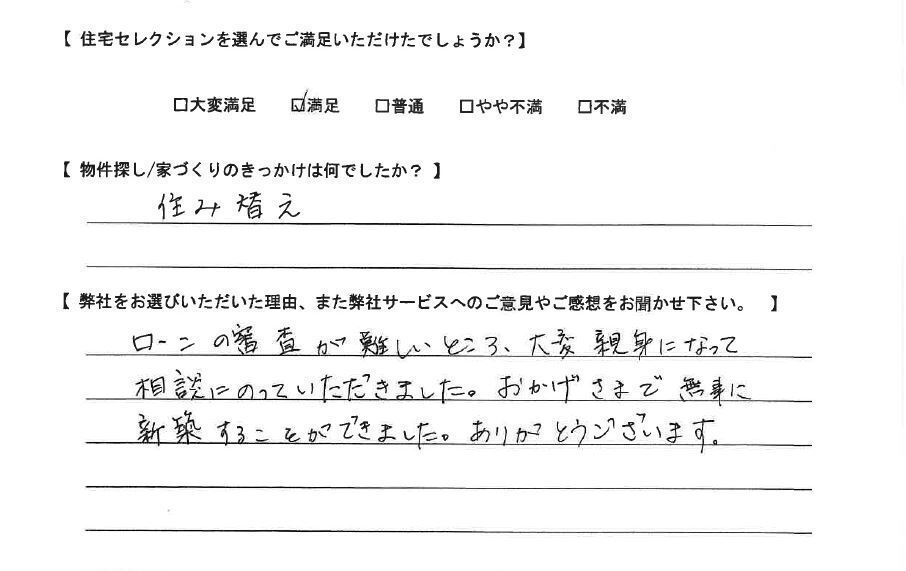 【 住宅セレクションを選んでご満足いただけたでしょうか？】
□大変満足 ☑満足 □普通 □やや不満 □不満
【 物件探し/家づくりのきっかけは何でしたか？ 】
住み替え
【 弊社をお選びいただいた理由、また弊社サービスへのご意見やご感想をお聞かせ下さい。 】
ローンの審査が難しいところ、大変親身になって
相談にのっていただきました。おかげさまで無事に
新築することができました。ありがとうございます。